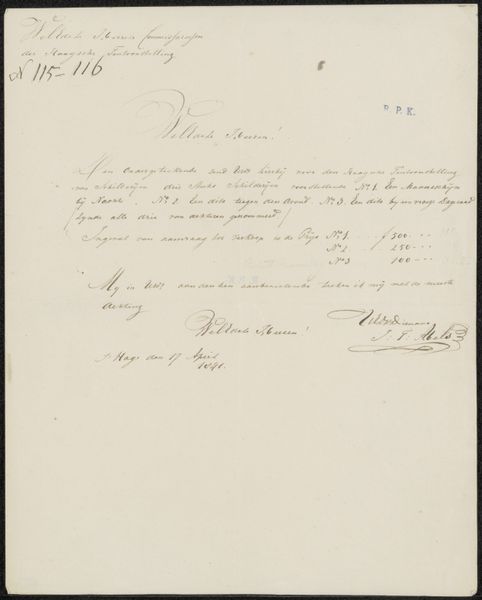 WelEdele Heeren Commissarissen
der Haagsche Tentoonstelling
N 115-116
R. P. K.
WelEdele Heeren!
Den Ondergeteekende zend UEd hierbij voor den Haagsche Tentoonstelling
van Schilderijen drie Stuks Schilderijen voorstellende No. 1. Een Manneschijn
bij Nacht. No. 2 Een dito tegen den Avond. No. 3. Een dito bij
zijnde alle drie van genommeerd
Ingeval van aanvraag tot verkoop is de Prijs No. 1 f 500 - - -
No. 2 250 - - -
No. 3 100 - - -
My in UEd. aandenken aanbevelende teeken ik mij met de meeste
Achting
WelEdele Heeren!
UEdDienaar
J: T: Abels
s Hage den 17 April
1841.